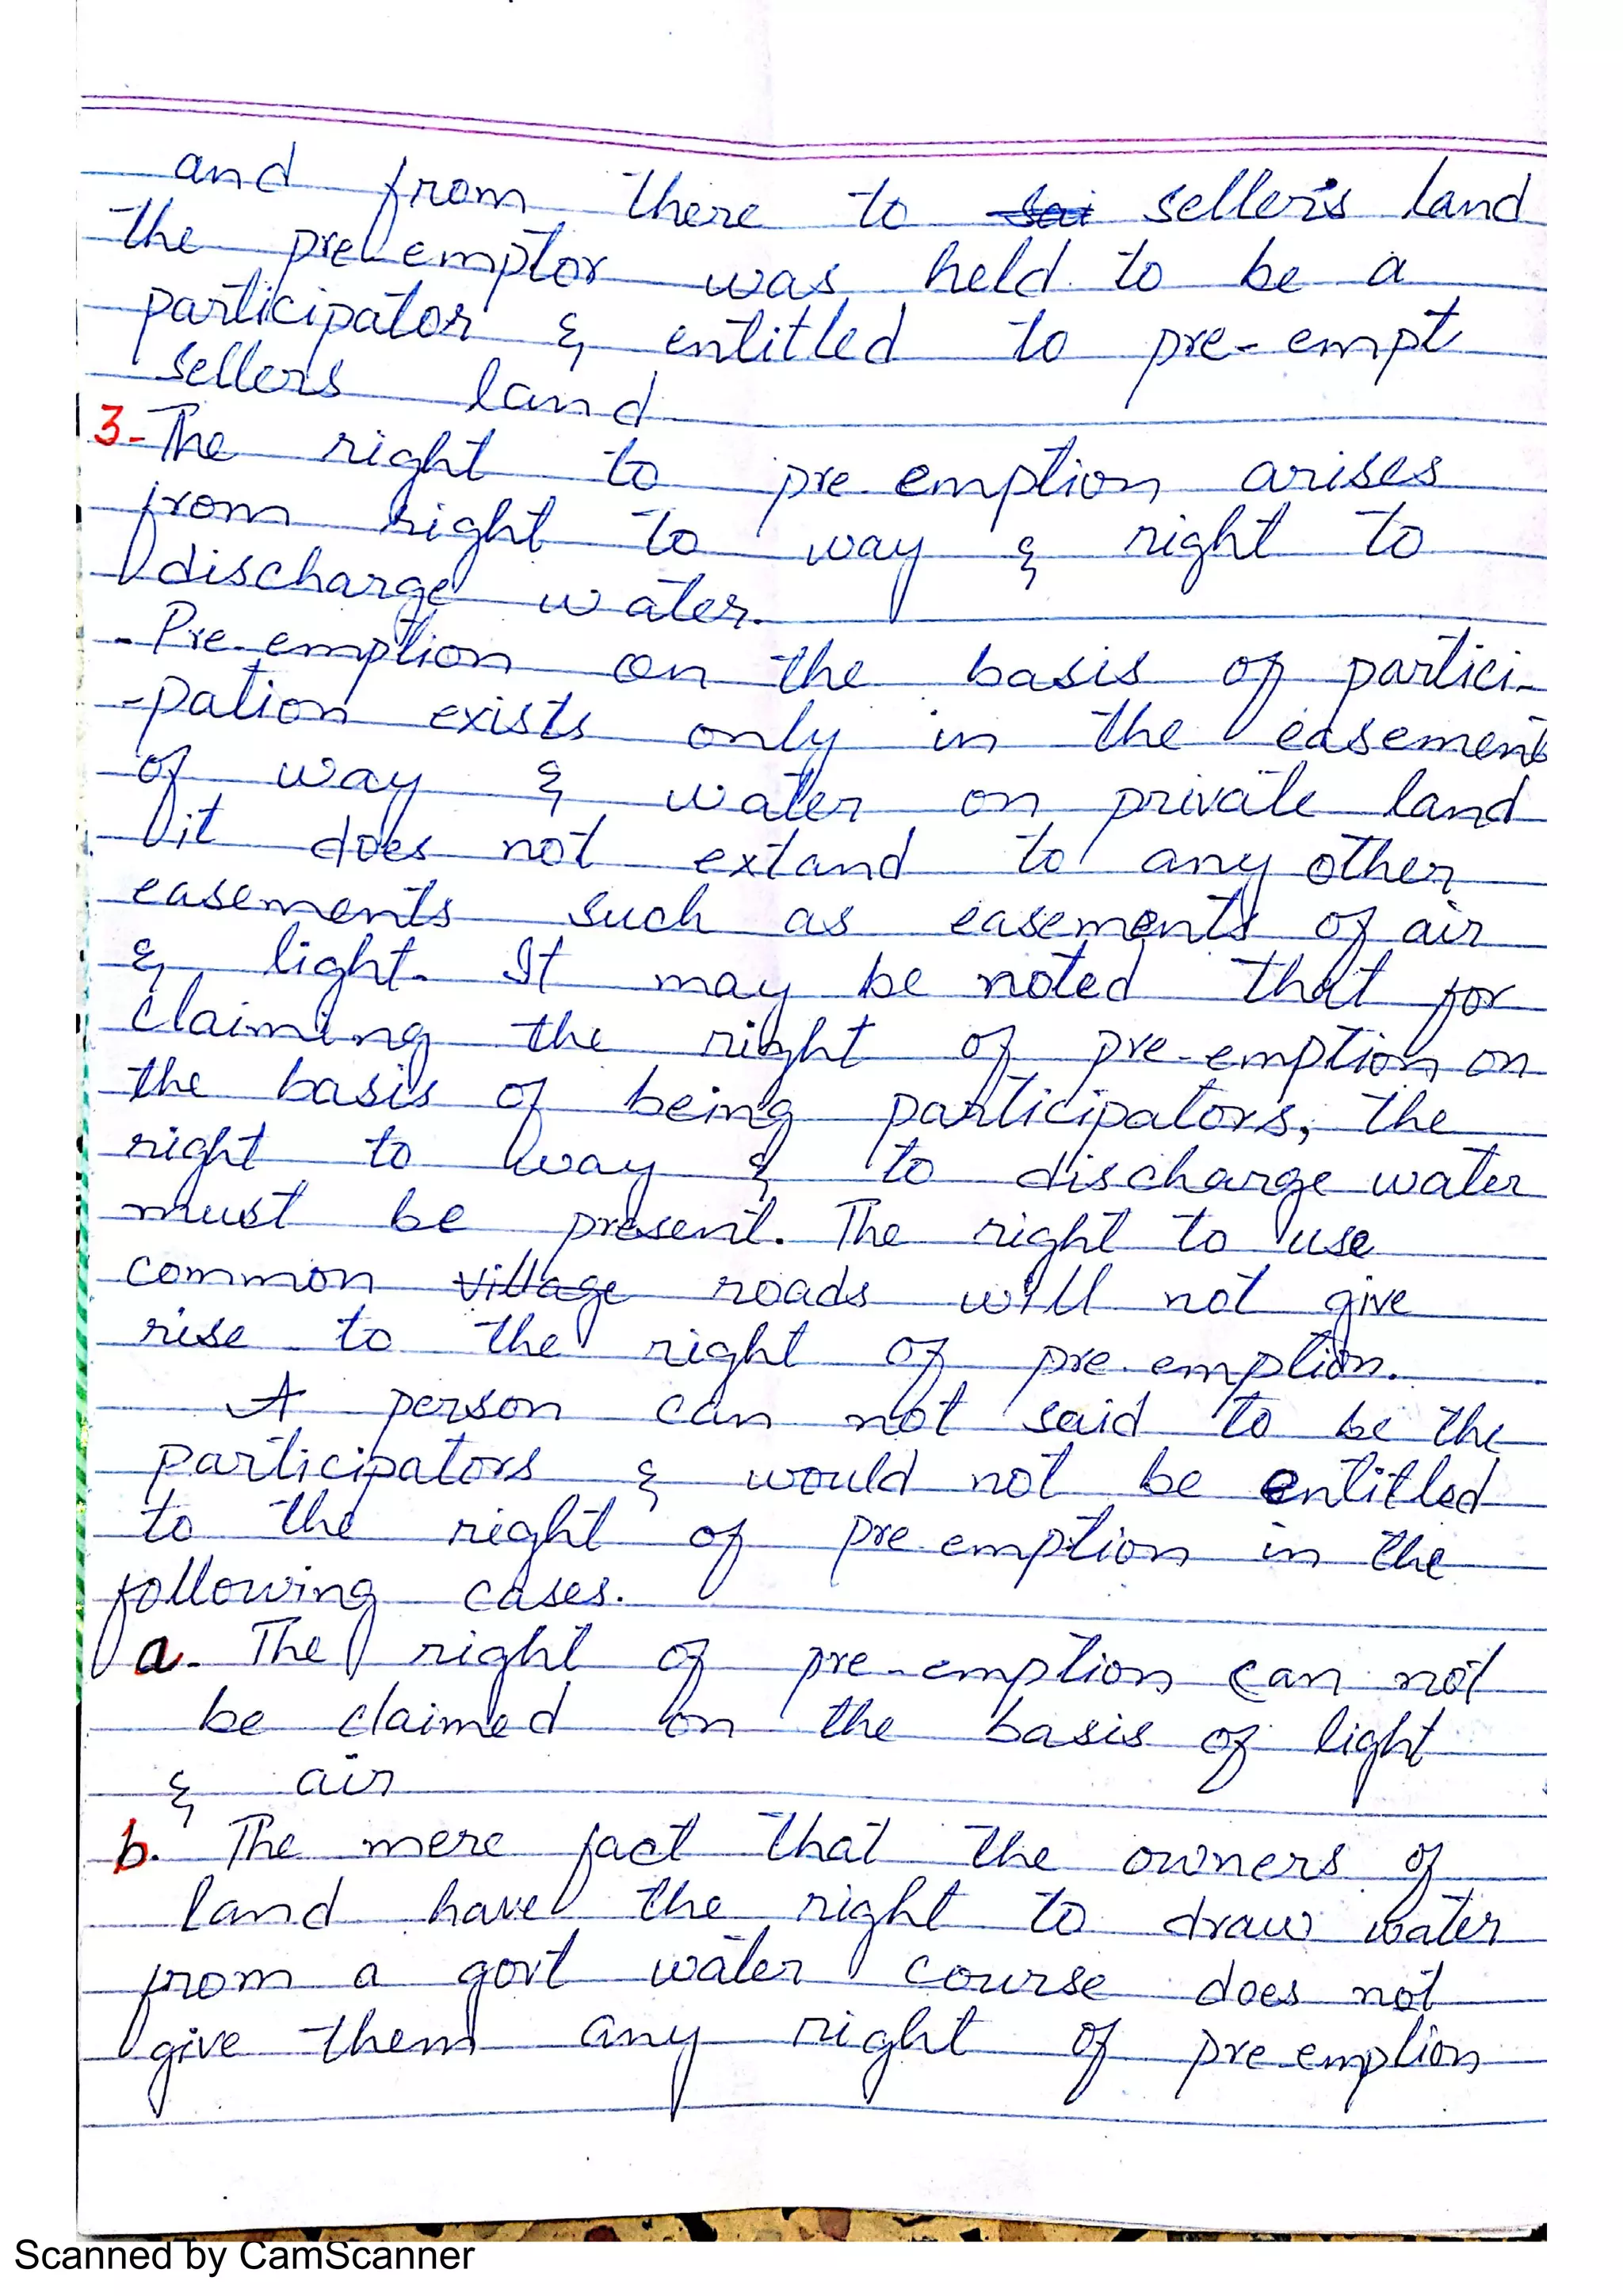 and from there to sellers land
the pre emptor was held to be a
participator & entitled to pre-empt
sellers land
3- The right to pre emption arises
from right to way & right to
discharge water.
- Pre-emption on the basis of partici-
-pation exists only in the easement
of way & water on private land
it does not extand to any other
easements such as easements of air
& light. It may be noted that for
claiming the right of pre-emption on
the basis of being participators, the
right to way & to discharge water
must be present. The right to use
common village roads will not give
rise to the right of pre-emption.
A person can not said to be the
participators & would not be entitled
to the right of pre-emption in the
following cases.
a. The right of pre-emption can not
be claimed on the basis of light
& air
b. The mere fact that the owners of
land have the right to draw water
from a govt water course does not
give them any right of pre emption
Scanned by CamScanner